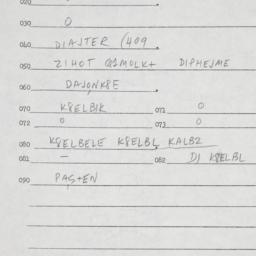 020
030 0
040 DIAJTER (409
050 ZIHOT @1MOLK+ DIPHEJME
060 DAJONK8E
070 K8ELBIK 071 0
072 0 073 0
080 K8ELBELE K8ELBL KALBZ
081 — 082 DJ K8ELBL
090 PAS+EN